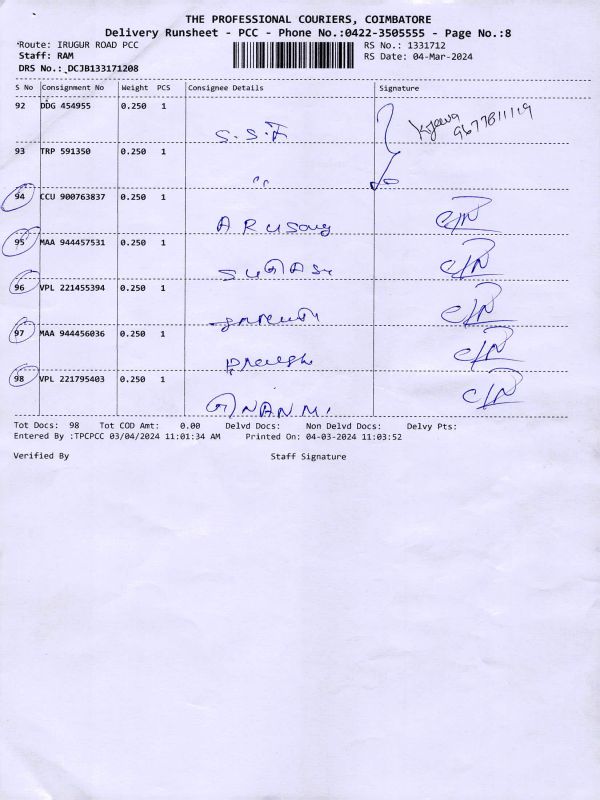 THE PROFESSIONAL COURIERS, COIMBATORE
Delivery Runsheet - PCC - Phone No.:0422-3505555 - Page No.:8
Route: IRUGUR ROAD PCC RS No.: 1331712
Staff: RAM RS Date: 04-Mar-2024
DRS No.: DCJB133171208
S No Consignment No Weight PCS Consignee Details Signature
92 DDG 454955 0.250 1
S.S.F
9677811119
93 TRP 591350 0.250 1
"
94 CCU 900763837 0.250 1
95 MAA 944457531 0.250 1
96 VPL 221455394 0.250 1
97 MAA 944456036 0.250 1
98 VPL 221795403 0.250 1
Tot Docs: 98 Tot COD Amt: 0.00 Delvd Docs: Non Delvd Docs: Delvy Pts:
Entered By :TPCPCC 03/04/2024 11:01:34 AM Printed On: 04-03-2024 11:03:52
Verified By Staff Signature